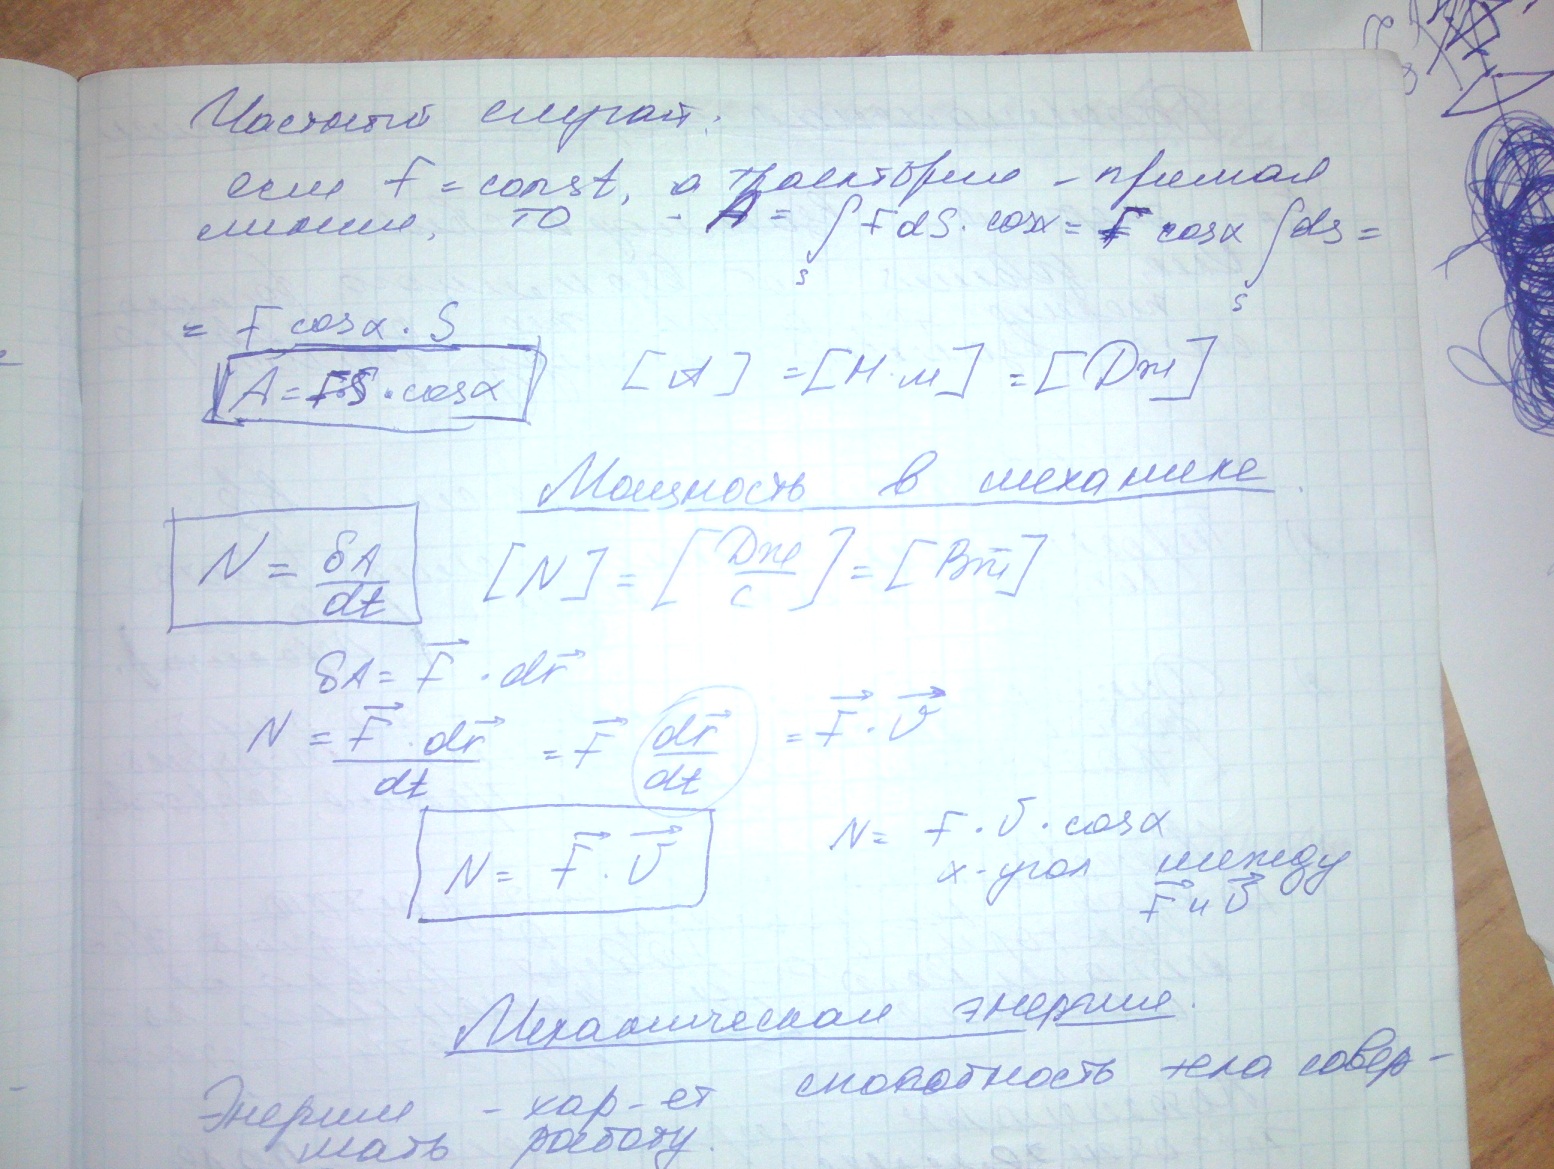 Частный случай:
если F = const, а траектория - прямая
линия, то - A = ∫ F dS · cosα = F cosα ∫ ds =
S S
= F cosα · S
A = F·S · cosα [A] = [Н·м] = [Дж]
Мощность в механике
N = δA/dt [N] = [Дж/с] = [Вт]
δA = F⃗ · dr⃗
N = F⃗ · dr⃗/dt = F⃗ dr⃗/dt = F⃗ · υ⃗
N = F⃗ · υ⃗ N = F · υ · cosα
α - угол между
F⃗ и υ⃗
Механическая энергия.
Энергия - хар-ет способность тела совер-
шать работу.